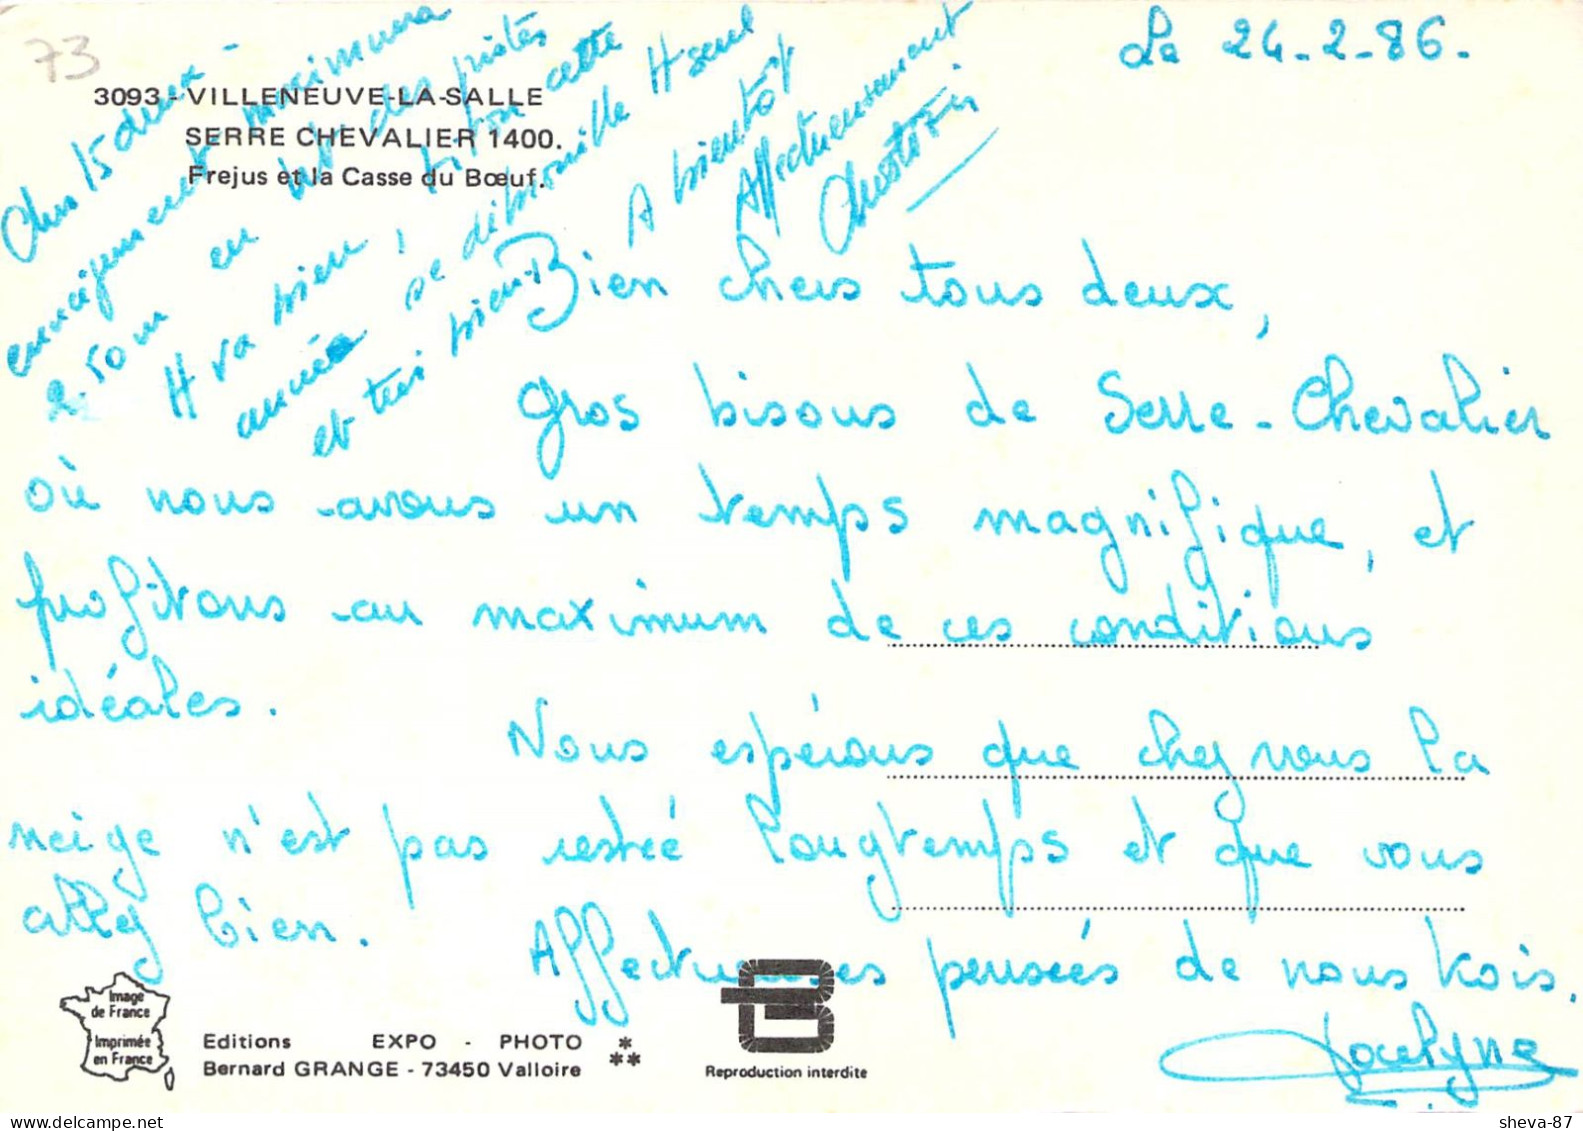 73
Le 24-2-86-
3093 - VILLENEUVE-LA-SALLE
SERRE CHEVALIER 1400.
Frejus et la Casse du Bœuf.
Bien chers tous deux,
Gros bisous de Serre-Chevalier
où nous avons un temps magnifique, et
profitons au maximum de ces conditions
idéales.
Nous espérons que chez vous la
neige n'est pas restée longtemps et que vous
allez bien.
Affectueuses pensées de nous trois.
Jocelyne
deux -
enneigement maximum
2.50m en des pistes
H va bien, cette
année se débrouille seul
et très bien.
A bientôt
Affectueusement
Image
de France
Imprimée
en France
Editions EXPO - PHOTO
Bernard GRANGE - 73450 Valloire
Reproduction interdite
sheva-87